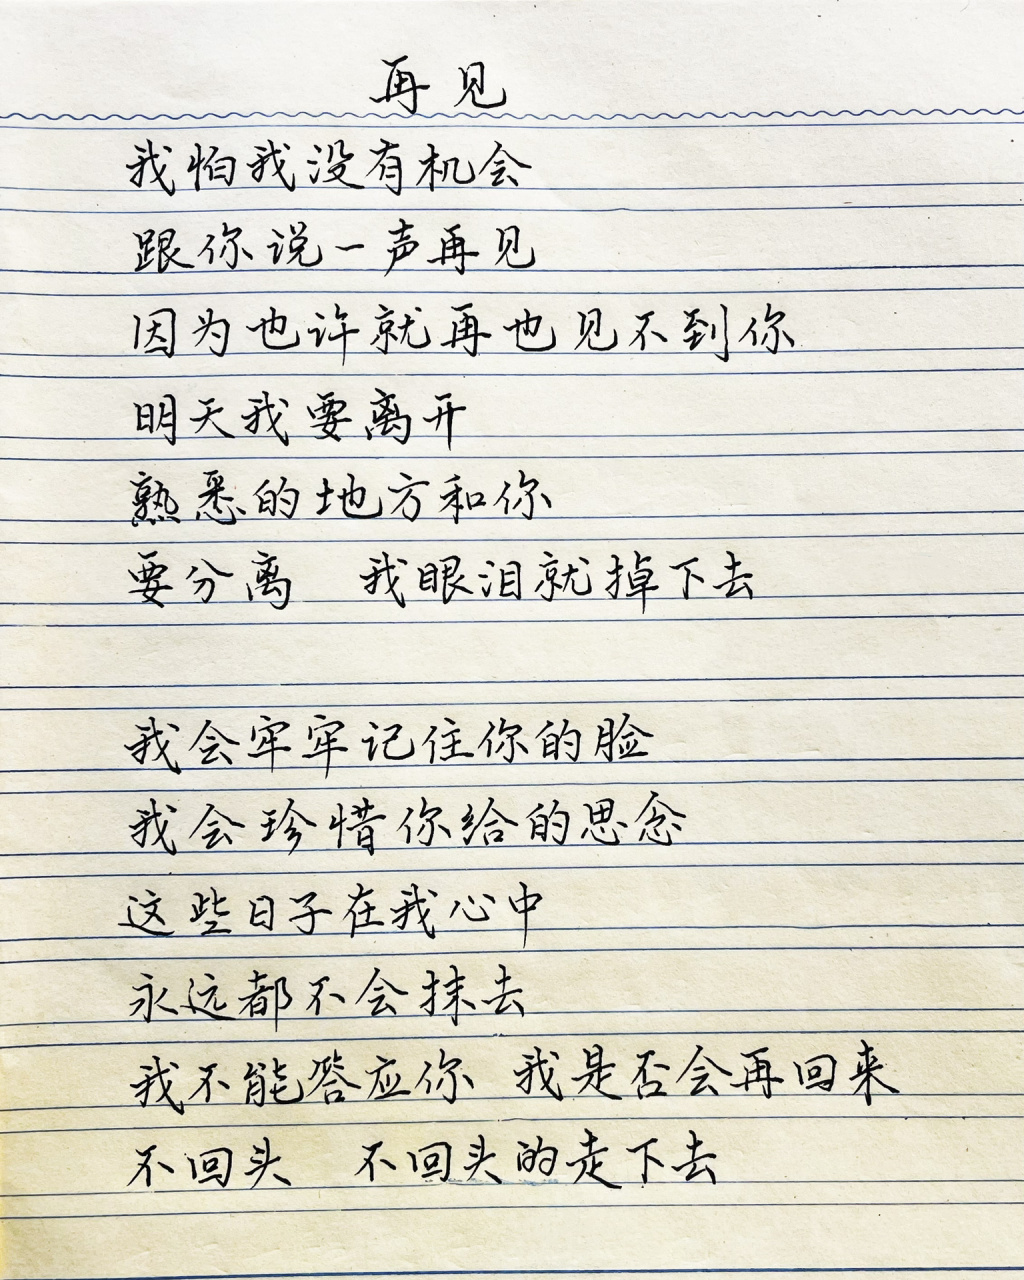 再见
我怕我没有机会
跟你说一声再见
因为也许就再也见不到你
明天我要离开
熟悉的地方和你
要分离 我眼泪就掉下去
我会牢牢记住你的脸
我会珍惜你给的思念
这些日子在我心中
永远都不会抹去
我不能答应你 我是否会再回来
不回头 不回头的走下去